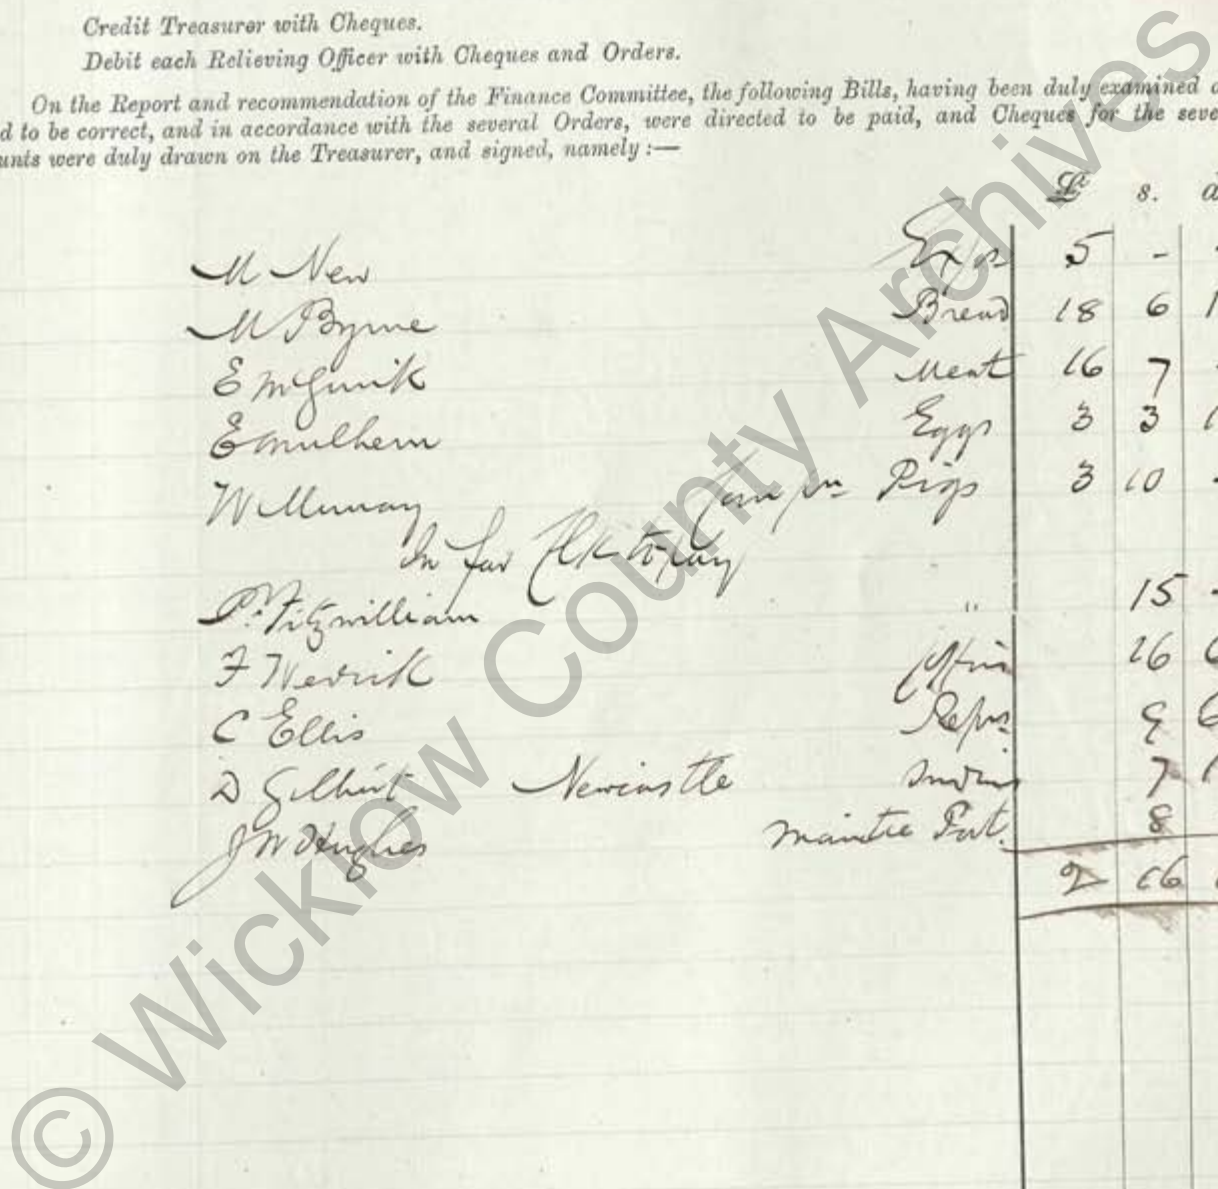 Credit Treasurer with Cheques.
Debit each Relieving Officer with Cheques and Orders.
On the Report and recommendation of the Finance Committee, the following Bills, having been duly examined
d to be correct, and in accordance with the several Orders, were directed to be paid, and Cheques for the seve
unts were duly drawn on the Treasurer, and signed, namely :—
£ s. d
M New Exps 5 - -
M Byrne Bread 18 6 1
E McGurrk Meat 16 7 -
E Mulhern Eggs 3 3 1
W Murray Pigs 3 10 -
In fav Clk to pay
P. Fitzwilliam " 15 -
F Coffins 16 6
C Ellis Reprs 9 6
D Gilbert Newcastle Sundries 7 1
J W Hughes Maintce 8
2 16 1
© Wicklow County Archives